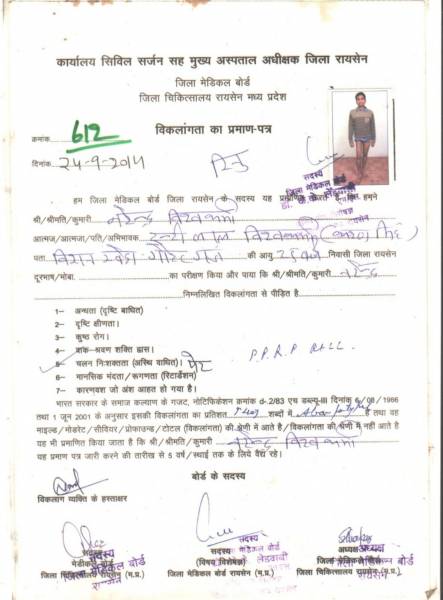 कार्यालय सिविल सर्जन सह मुख्य अस्पताल अधीक्षक जिला रायसेन
जिला मेडिकल बोर्ड
जिला चिकित्सालय रायसेन मध्य प्रदेश
क्रमांक 612
विकलांगता का प्रमाण-पत्र
दिनांक 24-9-2014
सदस्य
जिला मेडिकल बोर्ड
हम जिला मेडिकल बोर्ड जिला रायसेन के सदस्य यह प्रमाणित करते हैं कि हमने
श्री/श्रीमति/कुमारी नरेन्द्र विश्वकर्मा
आत्मज/आत्मजा/पति/अभिभावक लाल विश्वकर्मा
पता की आयु निवासी जिला रायसेन
दूरभाष/मोबा. का परीक्षण किया और पाया कि श्री/श्रीमति/कुमारी नरेन्द्र
निम्नलिखित विकलांगता से पीड़ित है
1- अन्धता (दृष्टि बाधित)
2- दृष्टि क्षीणता।
3- कुष्ठ रोग।
4- वाक-श्रवण शक्ति ह्रास।
5- चलन निःशक्तता (अस्थि बाधित)। P.P.R.P
6- मानसिक मंदता/रूगणता (रिटार्डेशन)
7- कारणवश जो अंश आहत हो गया है।
भारत सरकार के समाज कल्याण के गजट, नोटिफिकेशन क्रमांक d-2/83 एच डब्ल्यू-III दिनांक 6/08/1986
तथा 1 जून 2001 के अनुसार इसकी विकलांगता का प्रतिशत शब्दों में है तथा वह
माइल्ड/मोडरेट/सीवियर/प्रोफाउन्ड/टोटल (विकलांगता) की श्रेणी में आते है/विकलांगता की श्रेणी में नहीं आते है
यह भी प्रमाणित किया जाता है कि श्री/श्रीमति/कुमारी नरेन्द्र विश्वकर्मा
यह प्रमाण पत्र जारी करने की तारीख से 5 वर्ष/स्थाई तक के लिये वैद्य रहे।
बोर्ड के सदस्य
विकलांग व्यक्ति के हस्ताक्षर
सदस्य
मेडिकल बोर्ड
जिला रायसेन (म.प्र.)
(सदस्य)
(विषय विशेषज्ञ)
जिला मेडिकल बोर्ड रायसेन (म.प्र.)
अध्यक्ष
जिला मेडिकल बोर्ड
जिला चिकित्सालय रायसेन (म.प्र.)